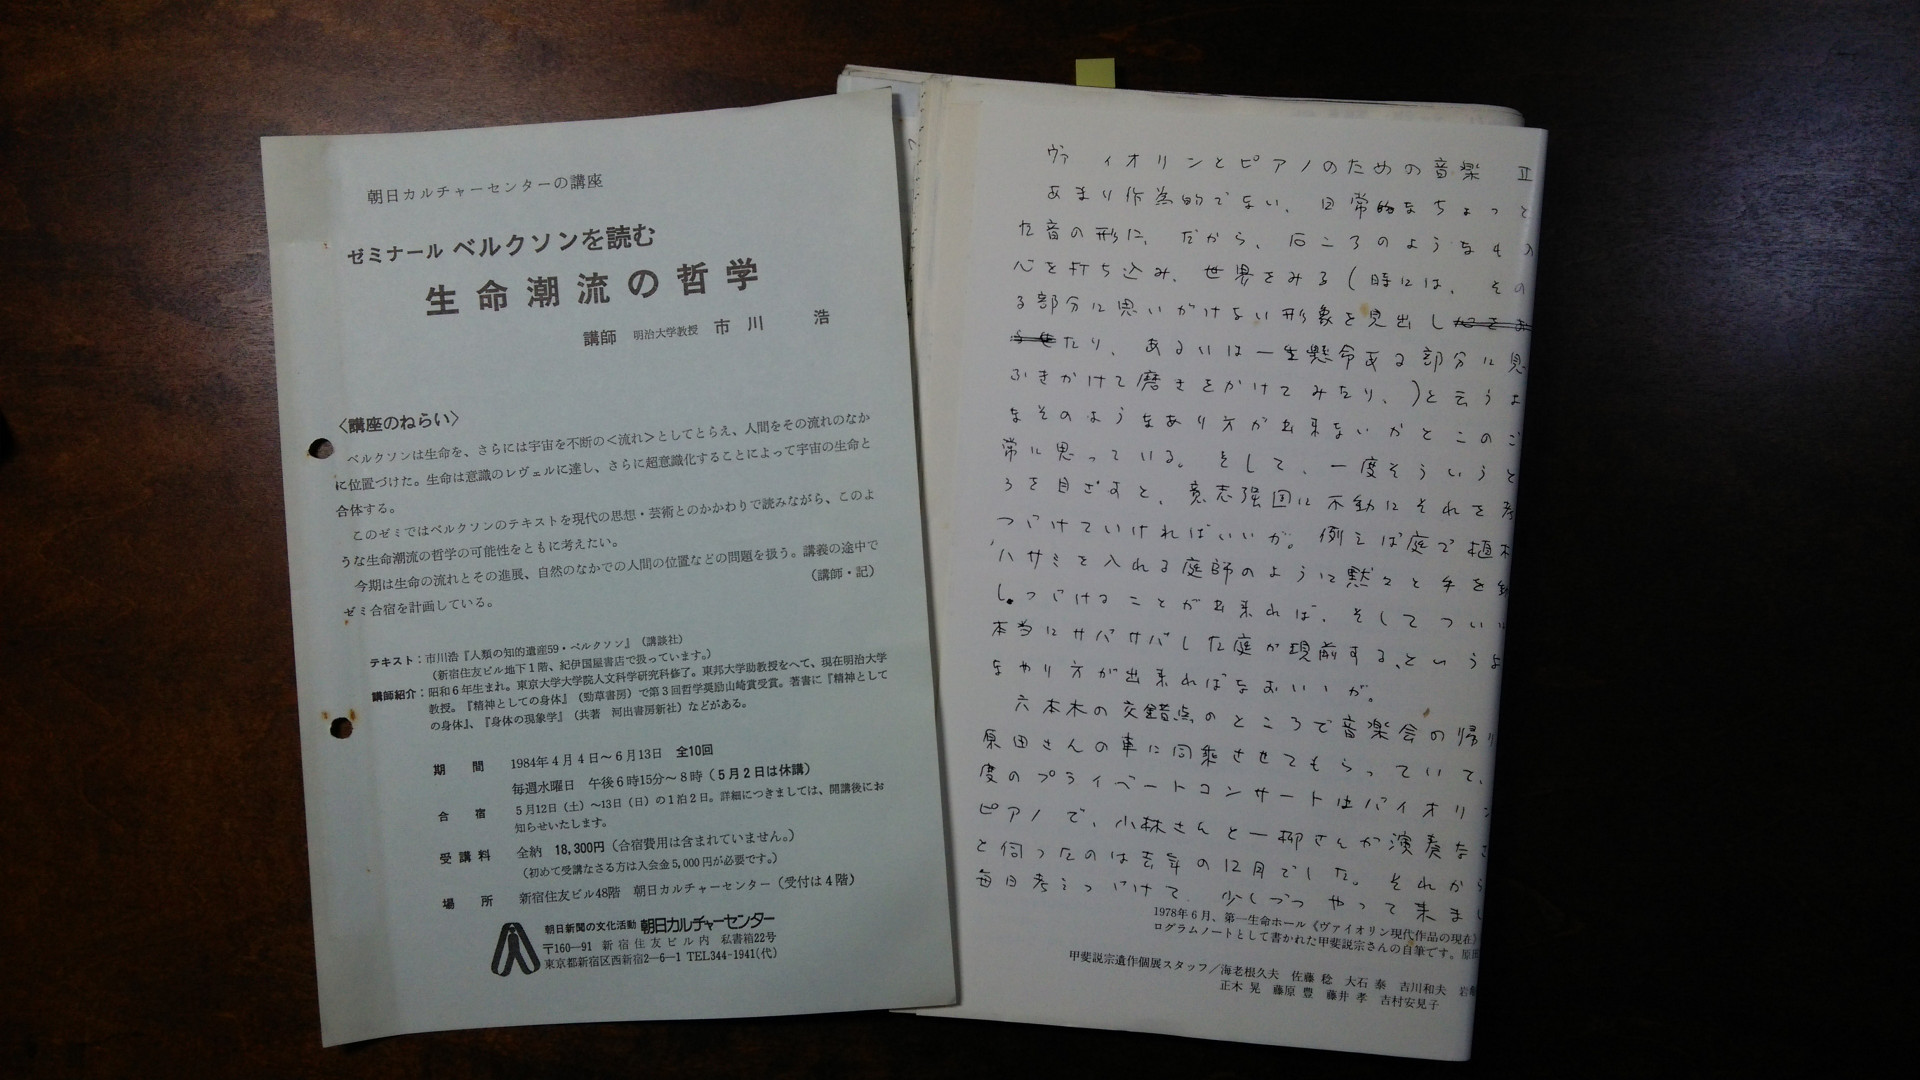 朝日カルチャーセンターの講座
ゼミナール ベルクソンを読む
生命潮流の哲学
講師 明治大学教授 市川 浩
〈講座のねらい〉
ベルクソンは生命を、さらには宇宙を不断の<流れ>としてとらえ、人間をその流れのなか
に位置づけた。生命は意識のレヴェルに達し、さらに超意識化することによって宇宙の生命と
合体する。
このゼミではベルクソンのテキストを現代の思想・芸術とのかかわりで読みながら、このよ
うな生命潮流の哲学の可能性をともに考えたい。
今期は生命の流れとその進展、自然のなかでの人間の位置などの問題を扱う。講義の途中で
ゼミ合宿を計画している。
（講師・記）
テキスト：市川浩『人類の知的遺産59・ベルクソン』（講談社）
（新宿住友ビル地下1階、紀伊国屋書店で扱っています。）
講師紹介：昭和6年生まれ。東京大学大学院人文科学研究科修了。東邦大学助教授をへて、現在明治大学
教授。『精神としての身体』（勁草書房）で第3回哲学奨励山崎賞受賞。著書に『精神として
の身体』、『身体の現象学』（共著 河出書房新社）などがある。
期 間 1984年4月4日〜6月13日 全10回
毎週水曜日 午後6時15分〜8時（5月2日は休講）
合 宿 5月12日（土）〜13日（日）の1泊2日。詳細につきましては、開講後にお
知らせいたします。
受講料 全納 18,300円（合宿費用は含まれていません。）
（初めて受講なさる方は入会金5,000円が必要です。）
場 所 新宿住友ビル48階 朝日カルチャーセンター（受付は4階）
朝日新聞の文化活動 朝日カルチャーセンター
〒160―91 新宿住友ビル内 私書箱22号
東京都新宿区西新宿2―6―1 TEL344-1941(代)
ヴァイオリンとピアノのための音楽 II
あまり作為的でない、日常的なちょっと
た音の形に、だから、石ころのようなもの
心を打ち込み、世界をみる（時には、その
る部分に思いがけない形象を見出し
たり、あるいは一生懸命ある部分に息
ふきかけて磨きをかけてみたり、）と云うよ
なそのようなあり方が出来ないかとこのご
常に思っている。そして、一度そういうと
ろを目ざすと、意志強固に不動にそれを考
つづけていければいいが。例えば庭で植木
ハサミを入れる庭師のように黙々と手を動
しつづけることが出来れば、そしてついに
本当にサバサバした庭が現前する、というよ
なやり方が出来ればなおいいが。
六本木の交錯点のところで音楽会の帰り
原田さんの車に同乗させてもらっていて、
度のプライベートコンサートはバイオリン
ピアノで、小林さんと一柳さんが演奏なさ
と伺ったのは去年の12月でした。それから
毎日考えつづけて、少しづつやって来まし
1978年6月、第一生命ホール《ヴァイオリン現代作品の現在》
ログラムノートとして書かれた甲斐説宗さんの自筆です。原田
甲斐説宗遺作個展スタッフ／海老根久夫 佐藤 稔 大石 泰 吉川和夫
正木 晃 藤原 豊 藤井 孝 吉村安見子